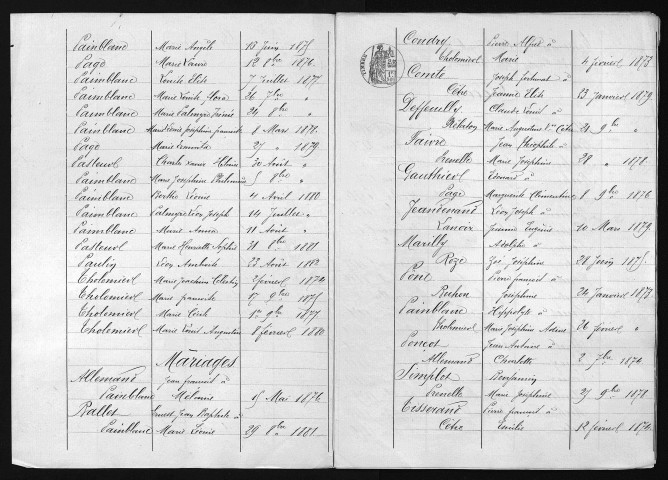 Painblanc Marie Angèle 13 Juin 1875
Page Marie Laure 12 9bre 1876
Painblanc Louise Elise 7 Juillet 1877
Painblanc Marie Louise Flora 26 7bre "
Painblanc Marie Palmyre Irénée 24 8bre "
Painblanc Marie Louis Joseph François 8 Mars 1878
Page Marie 27 " 1879
Pasteur Charles Xavier 30 Août "
Painblanc Marie Joséphine Philomène 5 9bre "
Painblanc Berthe Léonie 4 Avril 1880
Painblanc Palmyre Léon Joseph 14 Juillet "
Painblanc Marie Anna 11 Août "
Pasteur Marie Henriette Sophie 21 8bre 1881
Paulin Léon Ambroise 22 Août 1882
Tholomier Marie Joachim Célestin 2 février 1874
Tholomier Marie François 17 9bre 1875
Tholomier Marie Cécile 1er 9bre 1877
Tholomier Marie Louis Augustin 1 février 1880
Mariages
Allemand Jean François à
Painblanc Mélanie 15 Mai 1876
Rallet Ernest Jean Baptiste à
Painblanc Marie Léonie 29 8bre 1881
Coudry Pierre Alfred à
Tholomier Marie 4 février 1873
Comte Joseph Fortunat à
Côte Jeannie Elise 23 Janvier 1879
Claude Louis à
Marie Augustine Vve Côte 21 9bre "
Faivre Jean Théophile à
Prenelle Marie Joséphine 28 " 1878
Gauthier Edouard à
Page Marguerite Clémentine 8 9bre 1876
Jeandenand Léon Joseph à
Vanoix Jeanne Eugénie 10 Mars 1879
Marilly Adolphe à
Roze Zoé Joséphine 28 Juin 1875
Pone Pierre François à
Joséphine 24 Janvier 1873
Painblanc Hippolyte à
Tholomier Marie Joséphine 26 février "
Poncot Jean Antoine à
Allemand Charlotte 2 7bre 1874
Simplot Benjamin à
Prenelle Marie Joséphine 27 9bre 1878
Tisserand Pierre François à
Côte Emilie 12 février 1874